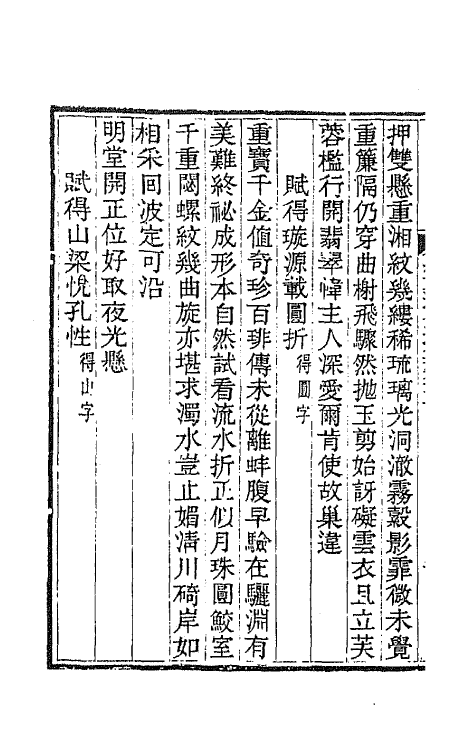 押雙懸重湘紋幾縷稀琉璃光洞澈霧縠影霏微未覺
重簾隔仍穿曲榭飛驟然拋玉剪始訝礙雲衣且立芙
蓉檻行開翡翠幃主人深愛爾肯使故巢違
賦得璇源載圓折得圓字
重寶千金值奇珍百琲傳未從離蚌腹早驗在驪淵有
美難終祕成形本自然試看流水折正似月珠圓鮫室
千重閟螺紋幾曲旋亦堪求濁水豈止媚清川碕岸如
相采回波定可沿
明堂開正位好取夜光懸
賦得山梁悅孔性得山字